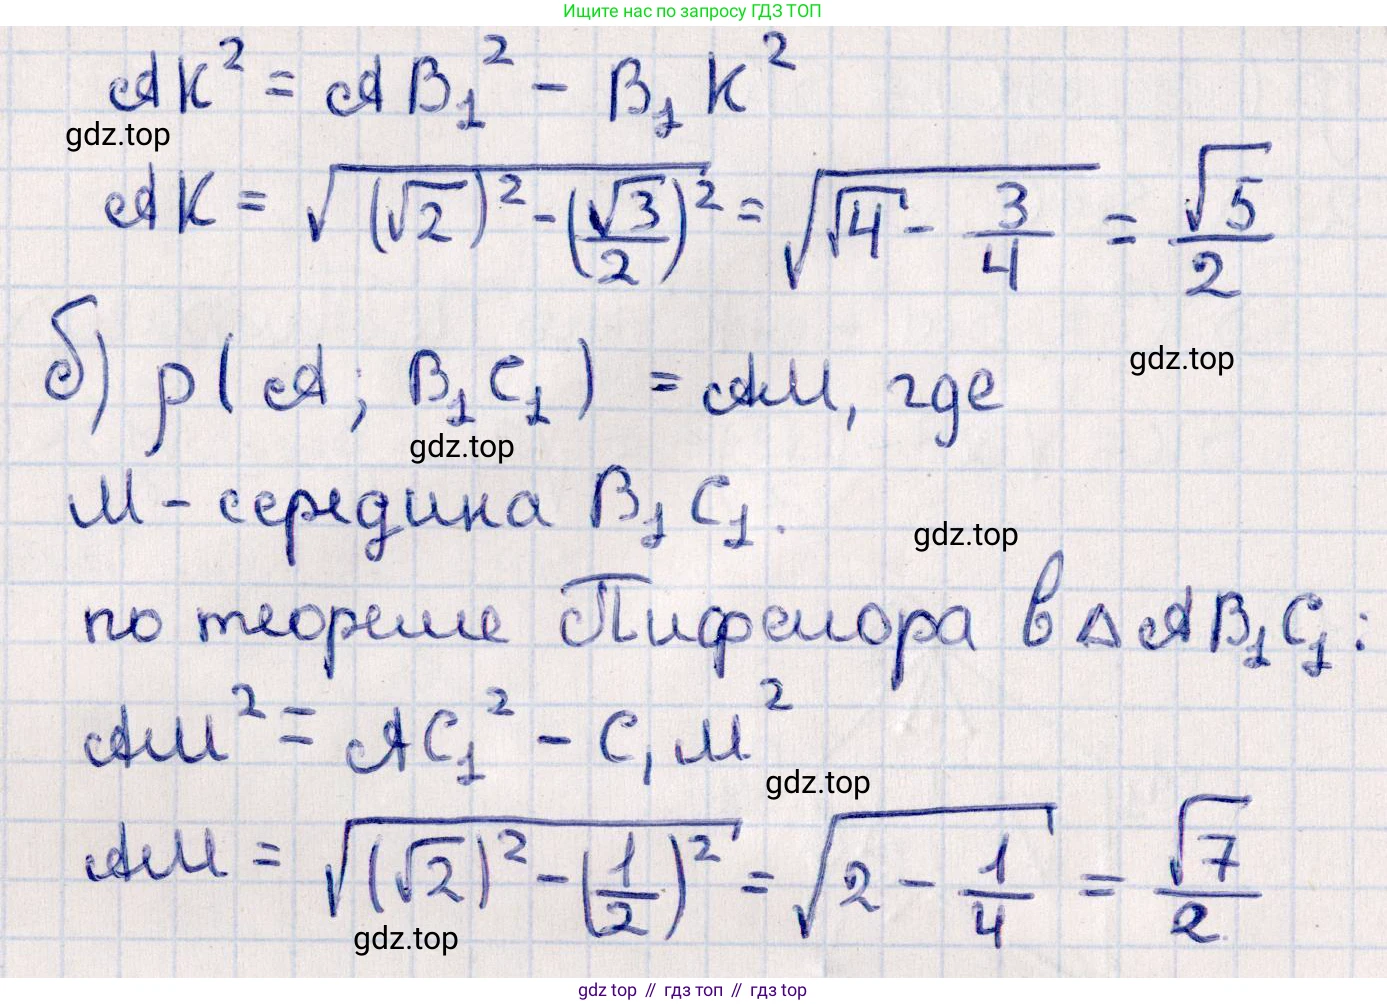 Ищите нас по запросу ГДЗ ТОП
AK² = AB₁² - B₁K²
gdz.top
AK = √((√2)² - (√3/2)²) = √(√4 - 3/4) = √5/2
б) ρ(A; B₁C₁) = AM, где
gdz.top
gdz.top
M - середина B₁C₁.
gdz.top
по теореме Пифагора в △AB₁C₁:
AM² = AC₁² - C₁M²
gdz.top
AM = √((√2)² - (1/2)²) = √(2 - 1/4) = √7/2
gdz.top
gdz top // гдз топ // gdz top